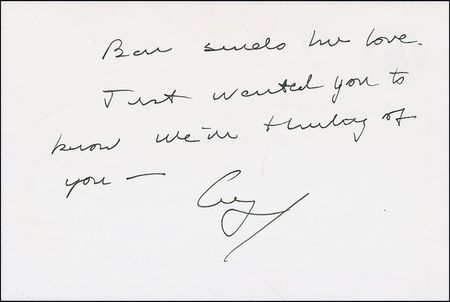 Bar sends her love.
Just wanted you to
know we're thinking of
you —